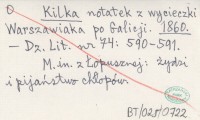 O Kilka notatek z wycieczki
Warszawiaka po Galicji. 1860.
- Dz. Lit. nr 74: 590-591.
M. in. z Łopusznej: żydzi
i pijaństwo chłopów.
BT/025/0722